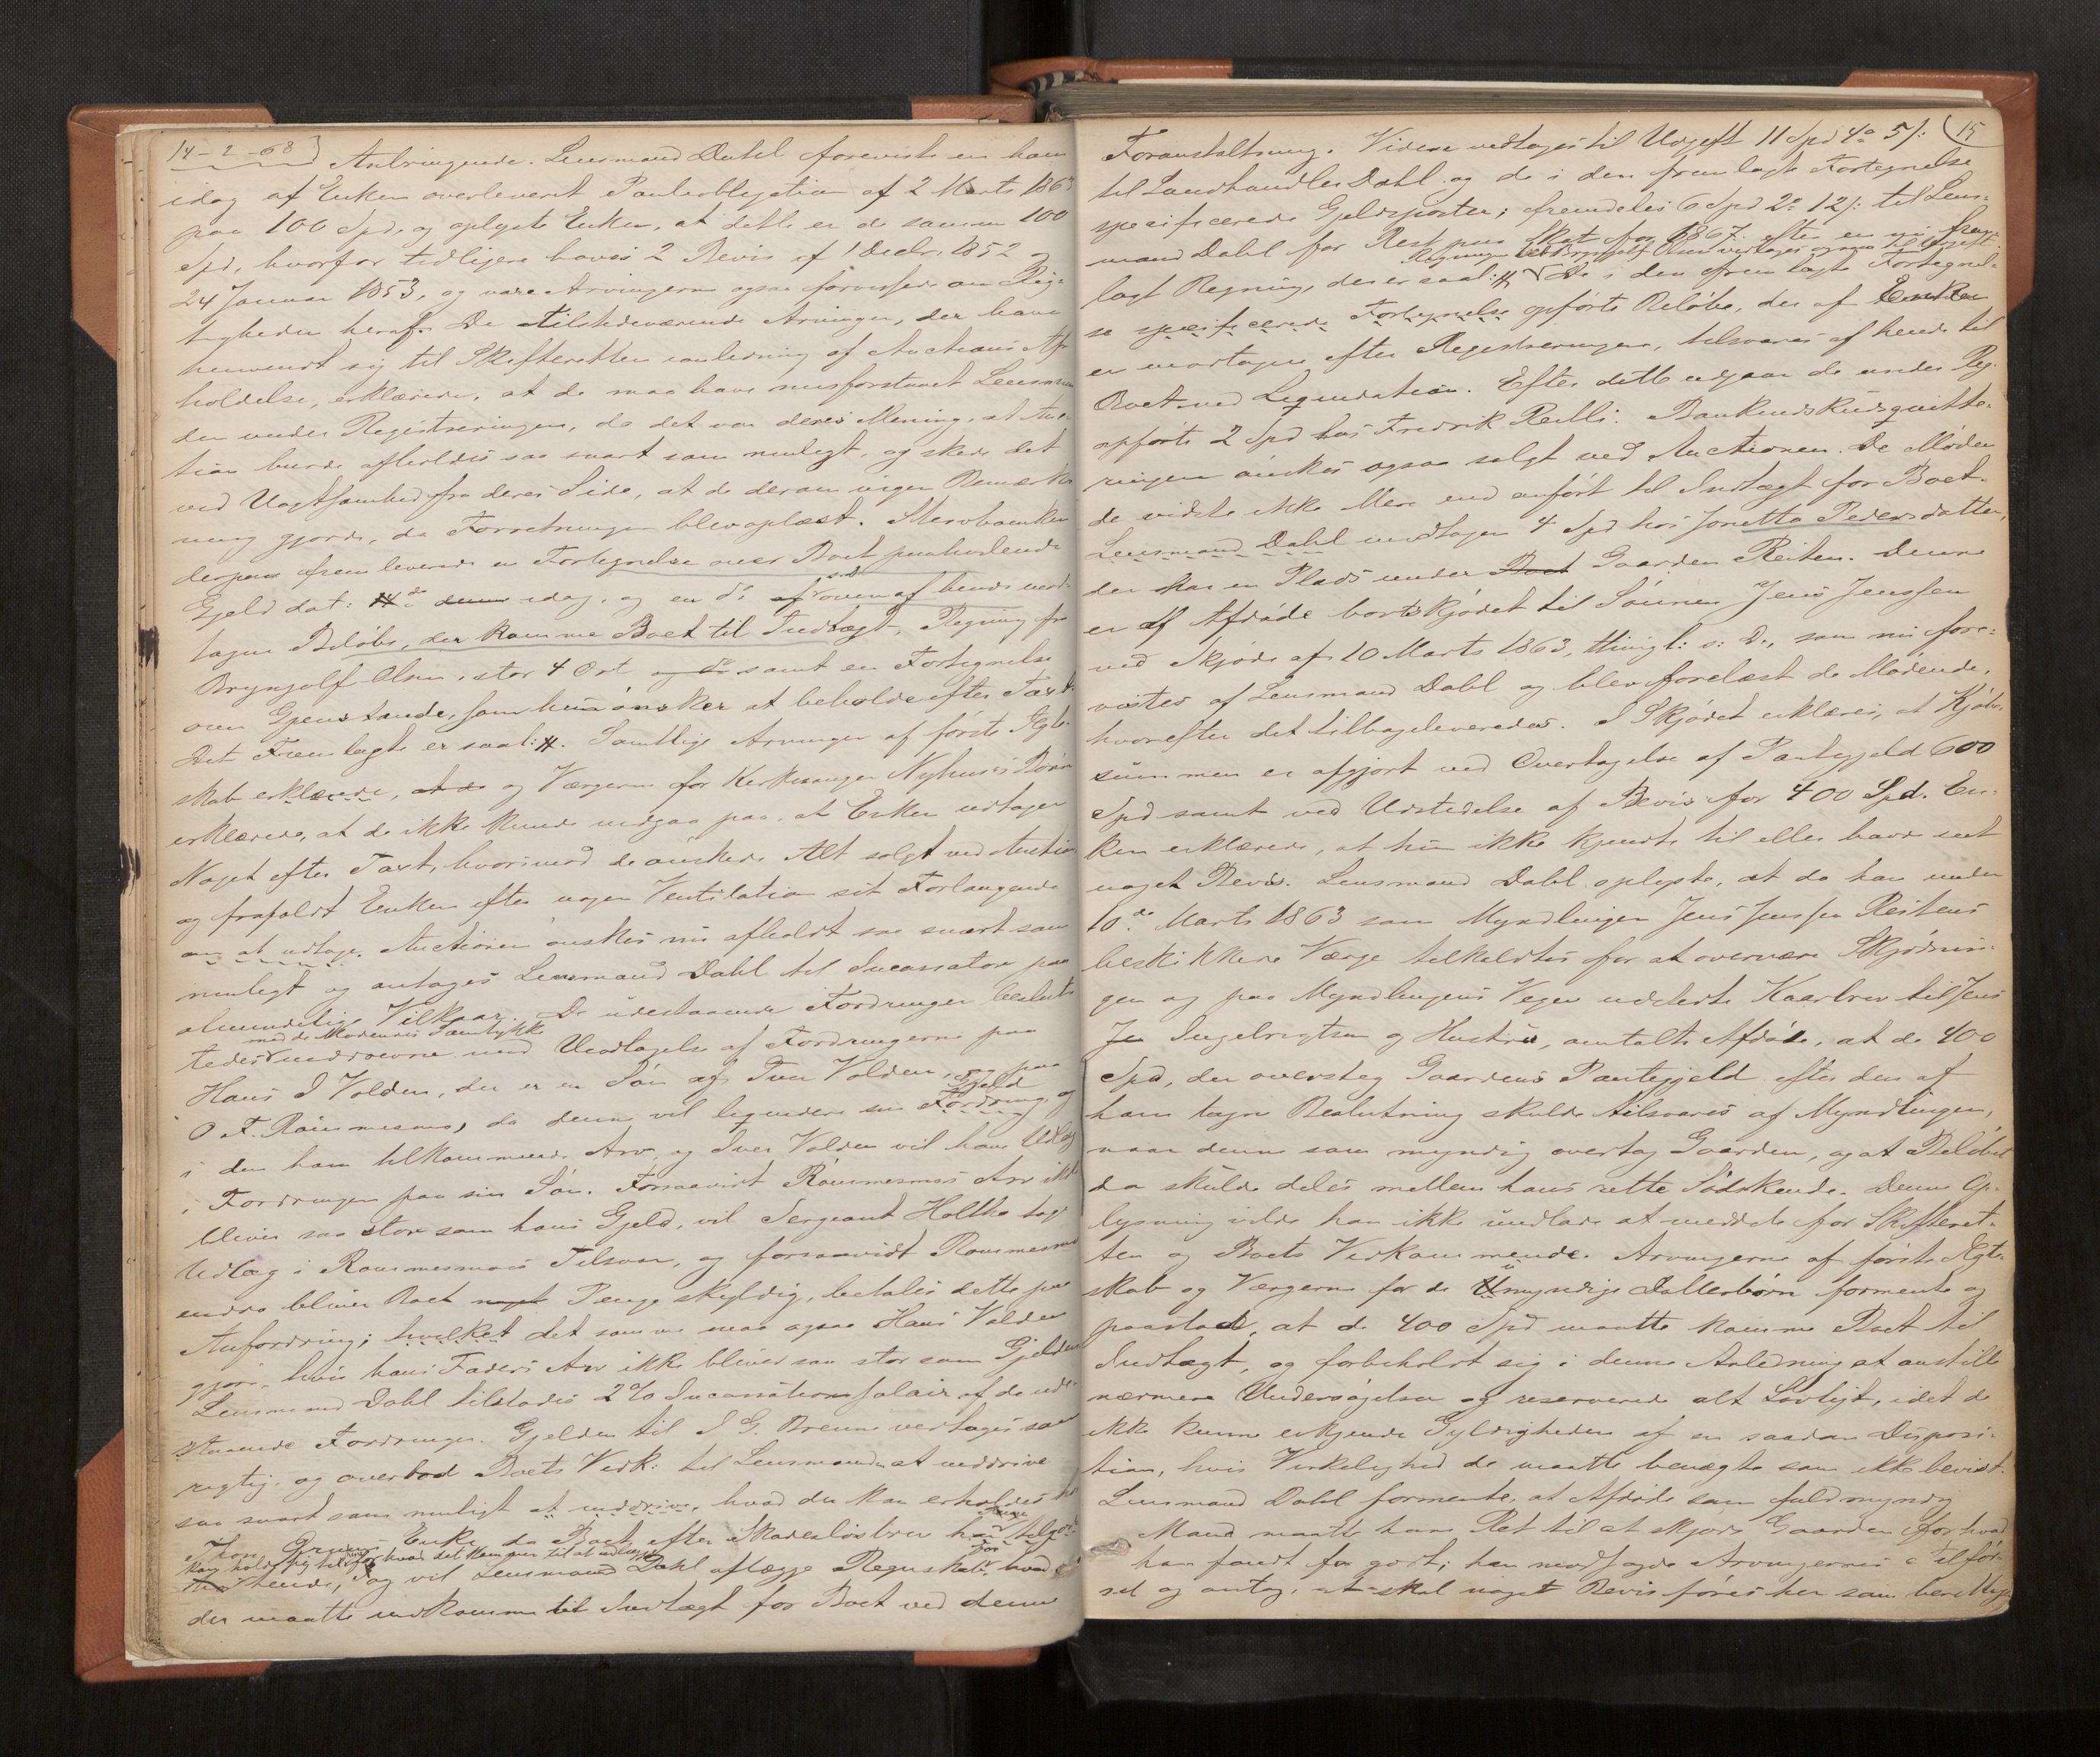 14-2-68
Anbringende. Lensmand Dahl foreviste en ham
idag af Enken overleveret Panteobligation af 2 Marts 1863
paa 100 Spd, og oplyste Enken, at dette er de samme 100
Spd, hvorfor tidligere haves 2 Bevis af 1 Decbr. 1852 og
24 Januar 1853, og vare Arvingerne ogsaa forvissede om Rig-
tigheden heraf. De tilstedeværende Arvinger, der have
henvendt sig til Skifteretten i anledning af Auctions Af-
holdelse, erklærede, at de maa have misforstaaet Lensman-
den under Registreringen, da det var deres Mening, at Auc-
tion burde afholdes saa snart som muligt, og skede det
ved Uagtsomhed fra deres Side, at de derom ingen Bemærk-
ning gjorde, da Forretningen blev oplæst. Stervboenken
derpaa fremleverede en Fortegnelse over Boet paahvilende
Gjeld dat: idag, og en do over af hende mod-
tagne Beløbe, der komme Boet til Indtægt, Regning fra
Brynjolf Olsen, stor 4 Ort samt en Fortegnelse
over Gjenstande, som hun ønsker at beholde efter Taxt.
Det Fremlagte er saal: #. Samtlige Arvinger af første Ægte-
skab erklærede, og Værgerne for Kirkesanger Nyhuus's Børn
erklærede, at de ikke kunde indgaa paa, at Enken udtager
Noget efter Taxt, hvorimod de ønskede Alt solgt ved Auction
og frafaldt Enken efter nogen Ventilation sit Forlangende
om at udtage. Auctionen ønskes nu afholdt saa snart som
muligt og antages Lensmand Dahl til Incassator paa
almindelige Vilkaar. De udestaaende Fordringer beslut-
med de Mødendes Samtykke
tedes inddrevne med Undtagelse af Fordringerne paa
Hans I Volden, der er en Søn af Iver Volden, og paa
O T. Rønmesmo, da denne vil liqvidere sin Gjeld
Fordring og
i den ham tilkommende Arv, og Iver Volden vil have Udlæg
i Fordringen paa sin Søn. Forsaavidt Rønmesmos Arv ikke
bliver saa stor som hans Gjeld, vil Sergeant Holthe tage
Udlæg i Rønmesmos Tilsvar, og forsaavidt Rønmesmo
endda bliver Boet noget Penge skyldig, betales dette paa
Anfordring; hvilket det samme maa ogsaa Hans Volden
gjøre, hvis hans Faders Arv ikke bliver saa stor som Gjelden
Lensmand Dahl tilstodes 2% Incassationssalair af de ude-
staaende Fordringer. Gjelden til I G. Brenne vedtages som
rigtig, og overlod Boets Vedk: til Lensmanden at inddrive
saa snart som muligt at inddrive, hvad der kan erholdes hos
Enke, da Boet efter Skadesløsbrev
kan holde sig til for hvad det kommer til at udlægge
hende, og vil Lensmand Dahl aflægge Regnskab for hvad
der maatte indkomme til Indtægt for Boet ved denne
15
Foranstaltning. Videre vedtages til Udgift 11 Spd 4o 5/:
til Landhandler Dahl og de i den fremlagte Fortegnelse
specificerede Gjeldsposter; fremdeles 6 Spd 2o 12/: til Lens-
mand Dahl for Rest paa Skat for 1867 efter en nu frem-
Regningen til Brynjolf Olsen vedtages ogsaa til Udgift
lagt Regning, der er saal: # De i den fremlagte Fortegnel-
se specificerede Fortegnelse opførte Beløbe, der af Enken
er modtagne efter Registreringen, tilsvares af hende til
Boet ved Liqvidation. Efter dette udgaar de under Reg.
opførte 2 Spd hos Fredrik Reilli. Bankindskudsqvitte-
ringen ønskes ogsaa solgt ved Auctionen. De Møden-
de vidste ikke Mere end anført til Indtægt for Boet.
Lensmand Dahl modtagen 4 Spd hos Jonetta Pedersdatter,
der har en Plads under Boet Gaarden Reiten. Denne
er af Afdøde bortskjødet til Sønnen Jens Jenssen
ved Skjøde af 10 Marts 1863, thingl: s: D:, som nu fore-
vistes af Lensmand Dahl og blev forelæst de Mødende,
hvorefter det tilbageleveredes. I Skjødet erklæres, at Kjøbe-
summen er afgjort ved Overtagelse af Pantegjeld 600
Spd samt ved Udstedelse af Bevis for 400 Spd. En-
ken erklærede, at hun ikke kjendte til eller havde seet
noget Bevis. Lensmand Dahl oplyste, at da han under
10de Marts 1863 som Myndlingen Jens Jenssen Reitens
beskikkede Værge tilkaldtes for at overvære Skjødnin-
gen og paa Myndlingens Vegne udstedte Kaarbrev til Jens
Je Ingebrigtsen og Hustru, omtalte Afdøde, at de 400
Spd, der oversteg Gaardens Pantegjeld efter den af
ham tagne Beslutning skulde tilsvares af Myndlingen,
naar denne som myndig overtog Gaarden, og at Beløbet
da skulde deles mellem hans rette Sødskende. Denne Op-
lysning vilde han ikke undlade at meddele for Skifteret-
ten og Boets Vedkommende. Arvingerne af første Ægte-
skab og Værgerne for de Umyndige Datterbørn formente og
paastod, at de 400 Spd maatte komme Boet til
Indtægt, og forbeholdt sig i denne Anledning at anstille
nærmere Undersøgelser og reserverede alt Lovligt, idet de
ikke kunne erkjende Gyldigheden af en saadan Disposi-
tion, hvis Virkelighed de maatte benægte som ikke bevist.
Lensmand Dahl formente, at Afdøde som fuldmyndig
Mand maatte have Ret til at skjøde Gaarden for hvad
han fandt for godt; han modsagde Arvingernes Tilfør-
sel og antog, at skal noget Bevis føres her som